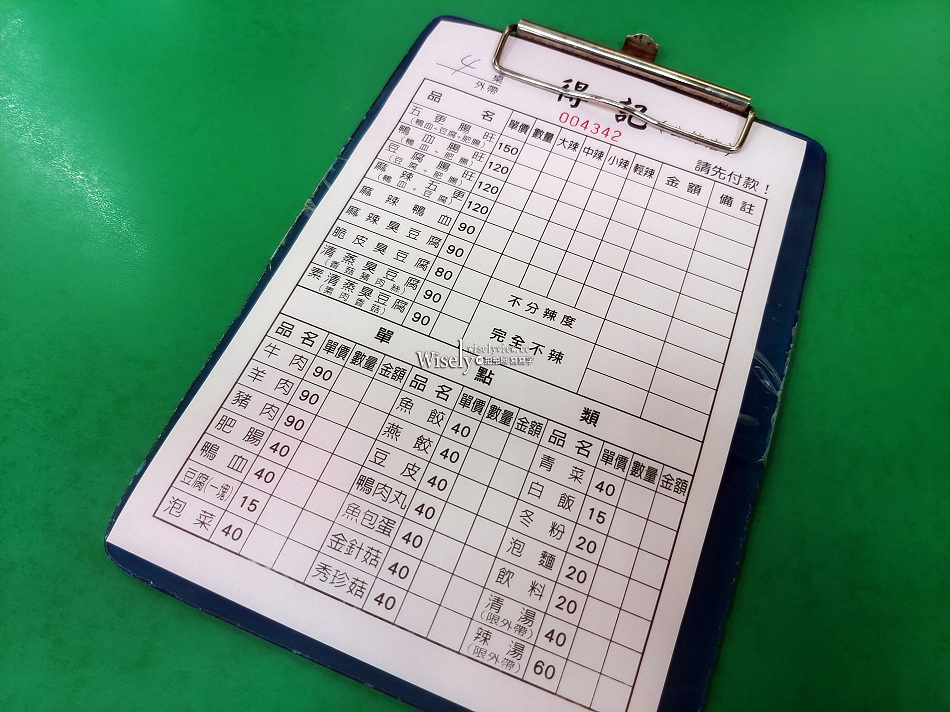 4 桌
外帶
得記
004342
請先付款！
品名 單價 數量 大辣 中辣 小辣 輕辣 金額 備註
五更腸旺 150
(鴨血+豆腐+肥腸)
鴨血腸旺 120
(鴨血+肥腸)
豆腐腸旺 120
(豆腐+肥腸)
麻辣五更 120
(鴨血+豆腐)
麻辣鴨血 90
麻辣臭豆腐 90
脆皮臭豆腐 80
清蒸臭豆腐 90 不分辣度
(香菇豬肉絲)
素清蒸臭豆腐 90 完全不辣
(素肉香菇)
單點類
品名 單價 數量 金額 品名 單價 數量 金額 品名 單價 數量 金額
牛肉 90 魚餃 40 青菜 40
羊肉 90 燕餃 40 白飯 15
豬肉 90 豆皮 40 冬粉 20
肥腸 40 鴨肉丸 40 泡麵 20
鴨血 40 魚包蛋 40 飲料 20
豆腐(一塊) 15 金針菇 40 清湯 40
(限外帶)
泡菜 40 秀珍菇 40 辣湯 60
(限外帶)
wiselyview.cc
Wisely